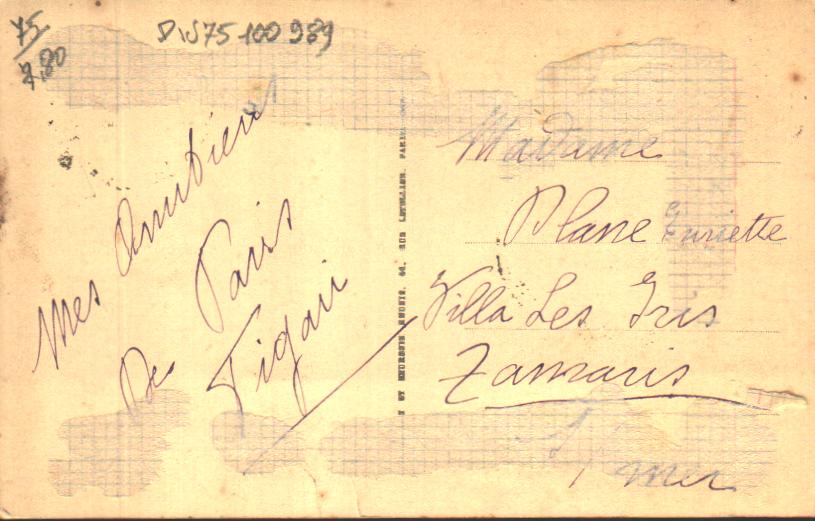 75
7,80
DIV75 100 989
Mes Amitiés
De Paris
Figari
RUE LETELLIER, PARIS
Madame
Plane Euriette
Villa Les Iris
Tamaris
S/ mer